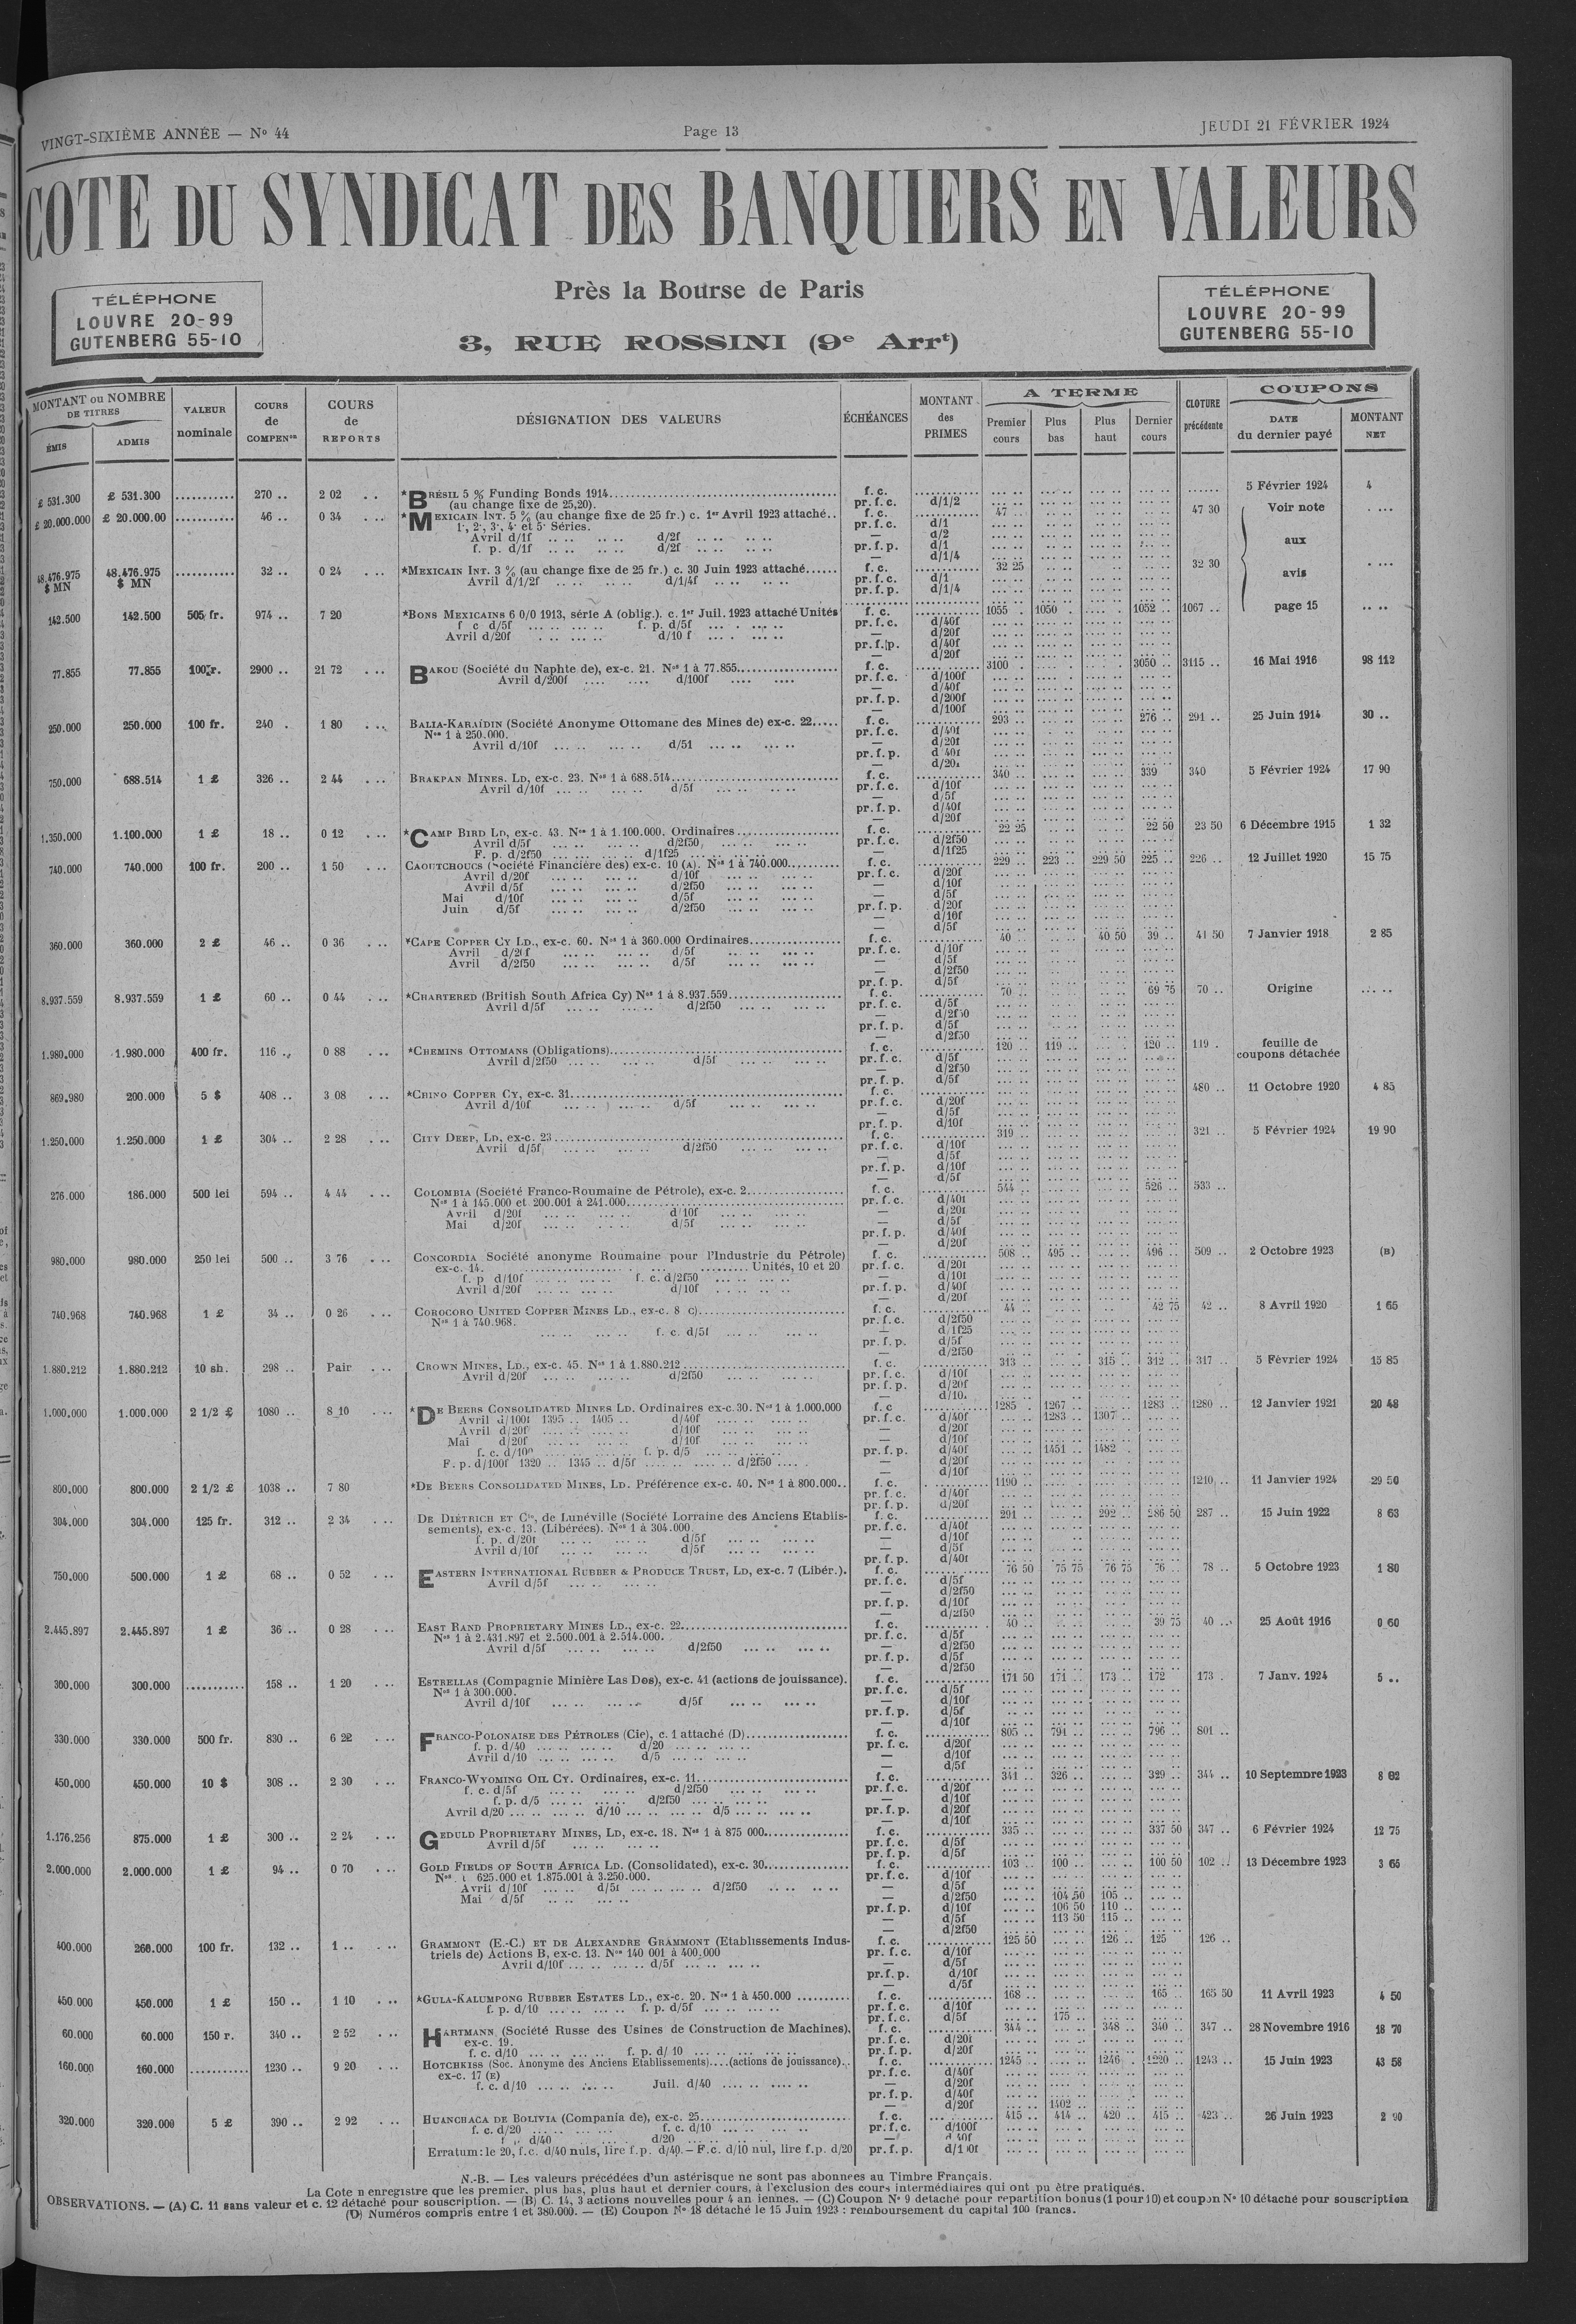 VINGT-SIXIÈME ANNÉE — Nº 44
Page 13
JEUDI 21 FÉVRIER 1924
COTE DU SYNDICAT DES BANQUIERS EN VALEURS
Près la Bourse de Paris
3, RUE ROSSINI (9e Arrt)
TÉLÉPHONE
LOUVRE 20-99
GUTENBERG 55-10
TÉLÉPHONE
LOUVRE 20-99
GUTENBERG 55-10
MONTANT ou NOMBRE DE TITRES
ÉMIS
ADMIS
VALEUR nominale
COURS de COMPENon
COURS de REPORTS
DÉSIGNATION DES VALEURS
ÉCHÉANCES
MONTANT des PRIMES
A TERME
Premier cours
Plus bas
Plus haut
Dernier cours
CLOTURE précédente
COUPONS
DATE du dernier payé
MONTANT NET
£ 531.300 £ 531.300 ........... 270 .. 2 02 .. *BRÉSIL 5 % Funding Bonds 1914 f. c. 5 Février 1924 4
(au change fixe de 25,20). pr. f. c. d/1/2
£ 20.000.000 £ 20.000.00 ........... 46 .. 0 34 .. *MEXICAIN INT. 5 % (au change fixe de 25 fr.) c. 1er Avril 1923 attaché.. f. c. 47 47 30 Voir note
1·, 2·, 3·, 4· et 5· Séries. pr. f. c. d/1
Avril d/1f d/2f — d/2
f. p. d/1f d/2f pr. f. p. d/1 aux
— d/1/4
48.476.975 $ MN 48.476.975 $ MN ........... 32 .. 0 24 ... *MEXICAIN INT. 3 % (au change fixe de 25 fr.) c. 30 Juin 1923 attaché...... f. c. 32 25 32 30 avis
Avril d/1/2f d/1/4f pr. f. c. d/1
pr. f. p. d/1/4
142.500 142.500 505 fr. 974 .. 7 20 *BONS MEXICAINS 6 0/0 1913, série A (oblig.). c. 1er Juil. 1923 attaché Unités f. c. 1055 .. 1050 . 1052 .. 1067 .. page 15
f c d/5f f. p. d/5f pr. f. c. d/40f
Avril d/20f d/10 f — d/20f
pr. f. p. d/40f
— d/20f
77.855 77.855 100 r. 2900 .. 21 72 ... BAKOU (Société du Naphte de), ex-c. 21. Nos 1 à 77.855 f. c. 3100 3050 .. 3115 .. 16 Mai 1916 98 112
Avril d/200f d/100f pr. f. c. d/100f
— d/40f
pr. f. p. d/200f
— d/100f
250.000 250.000 100 fr. 240 . 1 80 ... BALIA-KARAÏDIN (Société Anonyme Ottomane des Mines de) ex-c. 22..... f. c. 293 .. 276 .. 291 .. 25 Juin 1914 30 ..
Nos 1 à 250.000. pr. f. c. d/40f
Avril d/10f d/5f — d/20f
pr. f. p. d 40f
— d/20f
750.000 688.514 1 £ 326 .. 2 44 ... BRAKPAN MINES. LD, ex-c. 23. Nos 1 à 688.514 f. c. 340 .. 339 340 5 Février 1924 17 90
Avril d/10f d/5f pr. f. c. d/10f
— d/5f
pr. f. p. d/40f
— d/20f
1.350.000 1.100.000 1 £ 18 .. 0 12 ... *CAMP BIRD LD, ex-c. 43. Nos 1 à 1.100.000. Ordinaires f. c. 22 25 22 50 23 50 6 Décembre 1915 1 32
Avril d/5f d/2f50 pr. f. c. d/2f50
F. p. d/2f50 d/1f25 — d/1f25
740.000 740.000 100 fr. 200 .. 1 50 ... CAOUTCHOUCS (Société Financière des) ex-c. 10 (A). Nos 1 à 740.000 f. c. 229 .. 223 .. 229 50 225 .. 226 .. 12 Juillet 1920 15 75
Avril d/20f d/10f pr. f. c. d/20f
Avril d/5f d/2f50 — d/10f
Mai d/10f d/5f — d/5f
Juin d/5f d/2f50 pr. f. p. d/20f
— d/10f
— d/5f
360.000 360.000 2 £ 46 .. 0 36 ... *CAPE COPPER CY LD., ex-c. 60. Nos 1 à 360.000 Ordinaires f. c. 40 .. 40 50 39 .. 41 50 7 Janvier 1918 2 85
Avril d/20f d/5f pr. f. c. d/10f
Avril d/2f50 d/5f — d/5f
— d/2f50
pr. f. p. d/5f
8.937.559 8.937.559 1 £ 60 .. 0 44 ... *CHARTERED (British South Africa Cy) Nos 1 à 8.937.559 f. c. 70 .. 69 75 70 .. Origine
Avril d/5f d/2f50 pr. f. c. d/5f
— d/2f50
pr. f. p. d/5f
— d/2f50
1.980.000 1.980.000 400 fr. 116 .. 0 88 ... *CHEMINS OTTOMANS (Obligations) f. c. 120 .. 119 .. 120 .. 119 . feuille de coupons détachée
Avril d/2f50 d/5f pr. f. c. d/5f
— d/2f50
pr. f. p. d/5f
869.980 200.000 5 $ 408 .. 3 08 ... *CHINO COPPER CY, ex-c. 31 f. c. 480 .. 11 Octobre 1920 4 85
Avril d/10f d/5f pr. f. c. d/20f
— d/5f
pr. f. p. d/10f
1.250.000 1.250.000 1 £ 304 .. 2 28 ... CITY DEEP, LD, ex-c. 23 f. c. 319 .. 321 .. 5 Février 1924 19 90
Avril d/5f d/2f50 pr. f. c. d/10f
— d/5f
pr. f. p. d/10f
— d/5f
276.000 186.000 500 lei 594 .. 4 44 ... COLOMBIA (Société Franco-Roumaine de Pétrole), ex-c. 2 f. c. 544 .. 526 .. 533 ..
Nos 1 à 145.000 et 200.001 à 241.000 pr. f. c. d/40f
Avril d/20f d/10f — d/20f
Mai d/20f d/5f — d/5f
pr. f. p. d/40f
— d/20f
980.000 980.000 250 lei 500 .. 3 76 ... CONCORDIA Société anonyme Roumaine pour l'Industrie du Pétrole) f. c. 508 .. 495 .. 496 .. 509 .. 2 Octobre 1923 (B)
ex-c. 14. Unités, 10 et 20 pr. f. c. d/20f
f. p d/10f f. c. d/2f50 — d/10f
Avril d/20f d/10f pr. f. p. d/40f
— d/20f
740.968 740.968 1 £ 34 .. 0 26 ... COROCORO UNITED COPPER MINES LD., ex-c. 8 C) f. c. 44 .. 42 75 42 .. 8 Avril 1920 1 65
Nos 1 à 740.968. pr. f. c. d/2f50
f. c. d/5f — d/1f25
pr. f. p. d/5f
— d/2f50
1.880.212 1.880.212 10 sh. 298 .. Pair ... CROWN MINES, LD., ex-c. 45. Nos 1 à 1.880.212 f. c. 313 .. 315 .. 312 .. 317 .. 5 Février 1924 15 85
Avril d/20f d/2f50 pr. f. c. d/10f
pr. f. p. d/20f
— d/10.
1.000.000 1.000.000 2 1/2 £ 1080 .. 8 10 ... *DE BEERS CONSOLIDATED MINES LD. Ordinaires ex-c. 30. Nos 1 à 1.000.000 f. c 1285 . 1267 .. 1283 .. 1280 .. 12 Janvier 1921 20 48
Avril d/100f 1395 .. 1405 .. d/40f pr. f. c. d/40f 1283 .. 1307 .
Avril d/20f d/10f — d/20f
Mai d/20f d/10f — d/10f
f. c. d/100 f. p. d/5 pr. f. p. d/40f 1451 .. 1482
F. p. d/100f 1320 .. 1345 .. d/5f d/2f50 — d/20f
— d/10f
800.000 800.000 2 1/2 £ 1038 .. 7 80 *DE BEERS CONSOLIDATED MINES, LD. Préférence ex-c. 40. Nos 1 à 800.000.. f. c. 1190 .. 1210 .. 11 Janvier 1924 29 50
pr. f. c. d/40f
pr. f. p. d/20f
304.000 304.000 125 fr. 312 .. 2 34 ... DE DIÉTRICH ET Cie, de Lunéville (Société Lorraine des Anciens Etablis- f. c. 291 .. 292 .. 286 50 287 .. 15 Juin 1922 8 63
sements), ex-c. 13. (Libérées). Nos 1 à 304.000 pr. f. c. d/40f
f. p. d/20f d/5f — d/10f
Avril d/10f d/5f — d/5f
pr. f. p. d/40f
750.000 500.000 1 £ 68 .. 0 52 ... EASTERN INTERNATIONAL RUBBER & PRODUCE TRUST, LD, ex-c. 7 (Libér.). f. c. 76 50 75 75 76 75 76 .. 78 .. 5 Octobre 1923 1 80
Avril d/5f pr. f. c. d/5f
— d/2f50
pr. f. p. d/10f
— d/2f50
2.445.897 2.445.897 1 £ 36 .. 0 28 ... EAST RAND PROPRIETARY MINES LD., ex-c. 22 f. c. 40 .. 39 75 40 .. 25 Août 1916 0 60
Nos 1 à 2.431.897 et 2.500.001 à 2.514.000. pr. f. c. d/5f
Avril d/5f d/2f50 — d/2f50
pr. f. p. d/5f
— d/2f50
300.000 300.000 ........... 158 .. 1 20 ... ESTRELLAS (Compagnie Minière Las Dos), ex-c. 41 (actions de jouissance). f. c. 171 50 171 .. 173 .. 172 173 . 7 Janv. 1924 5 ..
Nos 1 à 300.000. pr. f. c. d/5f
Avril d/10f d/5f — d/10f
pr. f. p. d/5f
— d/10f
330.000 330.000 500 fr. 830 .. 6 22 ... FRANCO-POLONAISE DES PÉTROLES (Cie), c. 1 attaché (D) f. c. 805 .. 791 .. 796 .. 801 ..
f. p. d/40 d/20 pr. f. c. d/20f
Avril d/10 d/5 — d/10f
— d/5f
450.000 450.000 10 $ 308 .. 2 30 ... FRANCO-WYOMING OIL CY. Ordinaires, ex-c. 11 f. c. 341 .. 326 .. 329 .. 344 .. 10 Septembre 1923 8 02
f. c. d/5f d/2f50 pr. f. c. d/20f
f. p. d/5 d/2f50 — d/10f
Avril d/20 d/10 d/5 pr. f. p. d/20f
— d/10f
1.176.256 875.000 1 £ 300 .. 2 24 ... GEDULD PROPRIETARY MINES, LD, ex-c. 18. Nos 1 à 875 000 f. c. 335 .. 337 50 347 .. 6 Février 1924 12 75
Avril d/5f pr. f. c. d/5f
pr. f. p. d/5f
2.000.000 2.000.000 1 £ 94 .. 0 70 ... GOLD FIELDS OF SOUTH AFRICA LD. (Consolidated), ex-c. 30 f. c. 103 .. 100 .. 100 50 102 .. 13 Décembre 1923 3 65
Nos 1 625.000 et 1.875.001 à 3.250.000. pr. f. c. d/10f
Avril d/10f d/5f d/2f50 — d/5f
Mai d/5f — d/2f50 104 50 105 ..
pr. f. p. d/10f 106 50 110 ..
— d/5f 113 50 115 ..
— d/2f50
400.000 260.000 100 fr. 132 .. 1 .. ... GRAMMONT (E.-C.) ET DE ALEXANDRE GRAMMONT (Etablissements Indus- f. c. 125 50 126 .. 125 126 ..
triels de) Actions B, ex-c. 13. Nos 140 001 à 400.000 pr. f. c. d/10f
Avril d/10f d/5f — d/5f
pr. f. p. d/10f
— d/5f
450 000 450.000 1 £ 150 .. 1 10 ... *GULA-KALUMPONG RUBBER ESTATES LD., ex-c. 20. Nos 1 à 450.000 f. c. 168 .. 165 .. 165 50 11 Avril 1923 4 50
f. p. d/10 f. p. d/5f pr. f. c. d/10f
pr. f. c. d/5f 175 ..
60.000 60.000 150 r. 340 .. 2 52 ... HARTMANN (Société Russe des Usines de Construction de Machines), f. c. 344 .. 348 .. 340 .. 347 .. 28 Novembre 1916 18 70
ex-c. 19. pr. f. c. d/20f
f. c. d/10 f. p. d/ 10 pr. f. p. d/20f
160.000 160.000 ........... 1230 .. 9 20 ... HOTCHKISS (Soc. Anonyme des Anciens Etablissements)....(actions de jouissance).. f. c. 1245 .. 1246 . 1220 .. 1243 .. 15 Juin 1923 43 58
ex-c. 17 (E) pr. f. c. d/40f
f. c. d/10 Juil. d/40 — d/20f
pr. f. p. d/40f
— d/20f 1402 ..
320.000 320.000 5 £ 390 .. 2 92 ... HUANCHACA DE BOLIVIA (Compania de), ex-c. 25 f. c. 415 .. 414 .. 420 .. 415 .. 423 .. 26 Juin 1923 2 90
f. c. d/20 f. c. d/10 pr. f. c. d/100f
d/40 d/20 — d 40f
Erratum: le 20, f.c. d/40 nuls, lire f.p. d/40. — F.c. d/10 nul, lire f.p. d/20 pr. f. p. d/100f
N.-B. — Les valeurs précédées d'un astérisque ne sont pas abonnées au Timbre Français.
La Cote n enregistre que les premier, plus bas, plus haut et dernier cours, à l'exclusion des cours intermédiaires qui ont pu être pratiqués.
OBSERVATIONS. — (A) C. 11 sans valeur et c. 12 détaché pour souscription. — (B) C. 14, 3 actions nouvelles pour 4 an iennes. — (C) Coupon Nº 9 detaché pour repartition bonus (1 pour 10) et coupon Nº 10 détaché pour souscription
(D) Numéros compris entre 1 et 380.000. — (E) Coupon Nº 18 détaché le 15 Juin 1923 : remboursement du capital 100 francs.